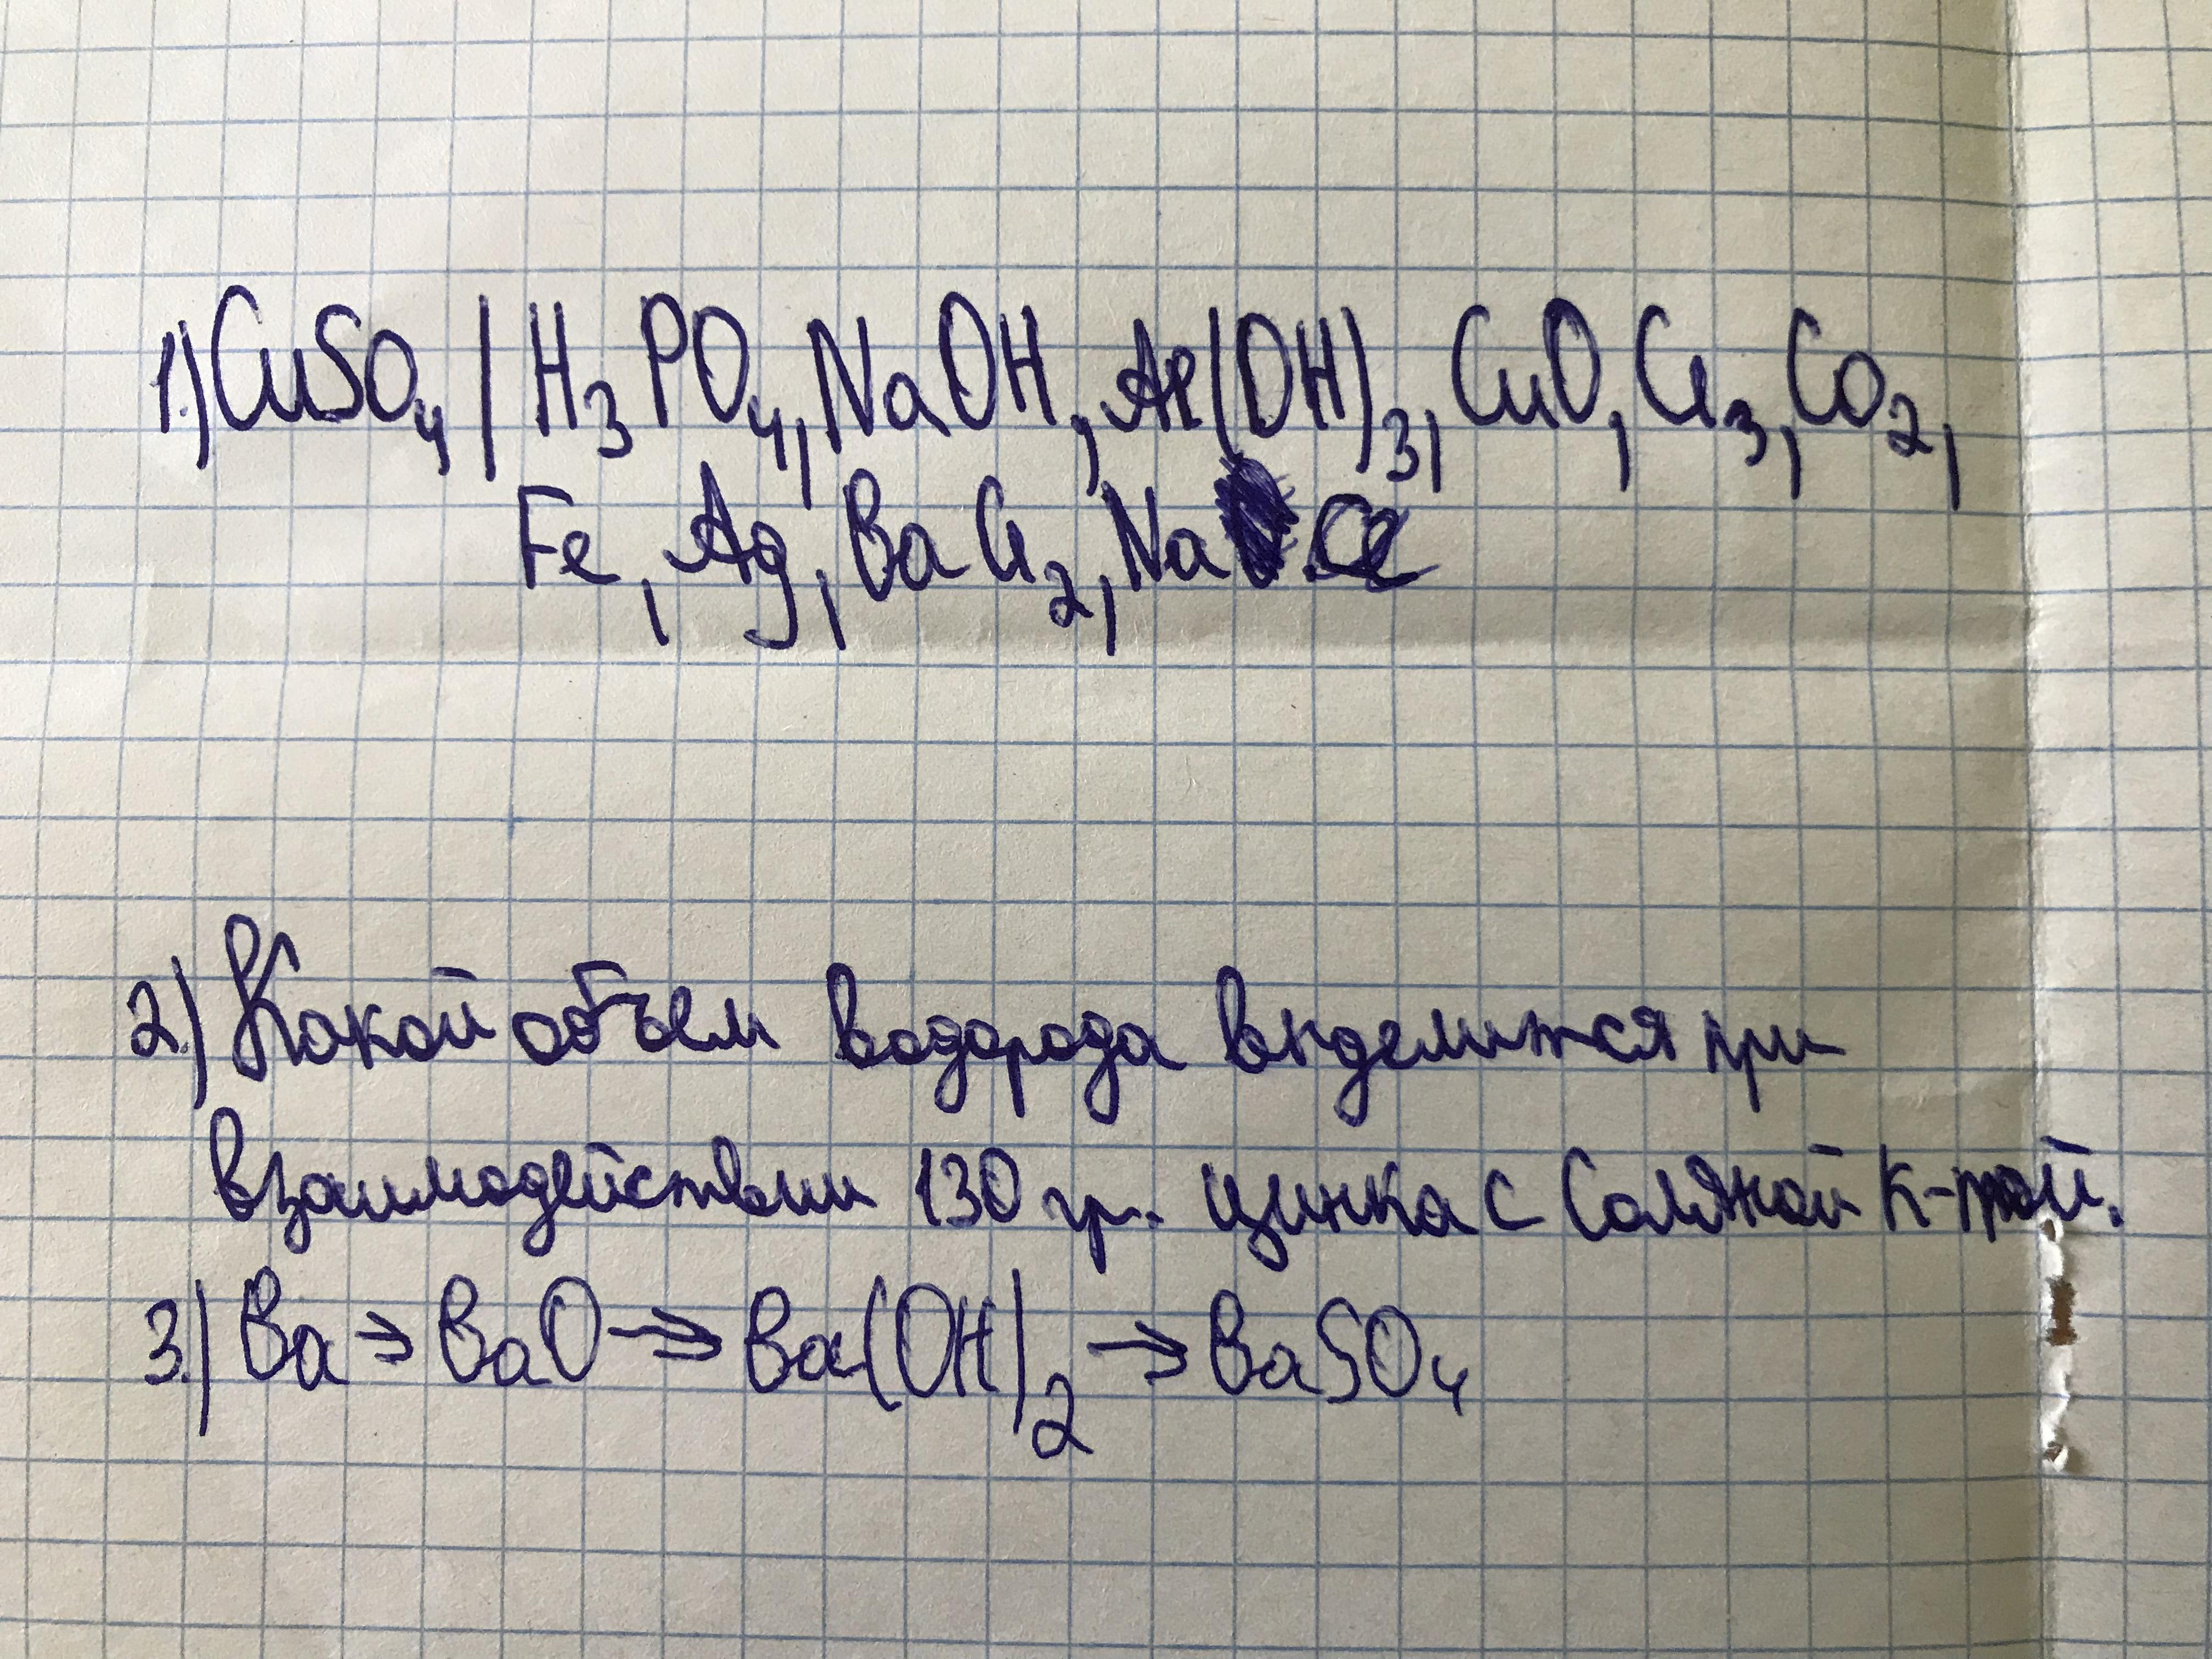 1.) CuSO₄ / H₃PO₄, NaOH, Al(OH)₃, CuO, Cl₃, CO₂,
Fe, Ag, BaCl₂, NaCl
2.) Какой объем водорода выделится при
взаимодействии 130 гр. цинка с Соляной к-той.
3.) Ba → BaO → Ba(OH)₂ → BaSO₄